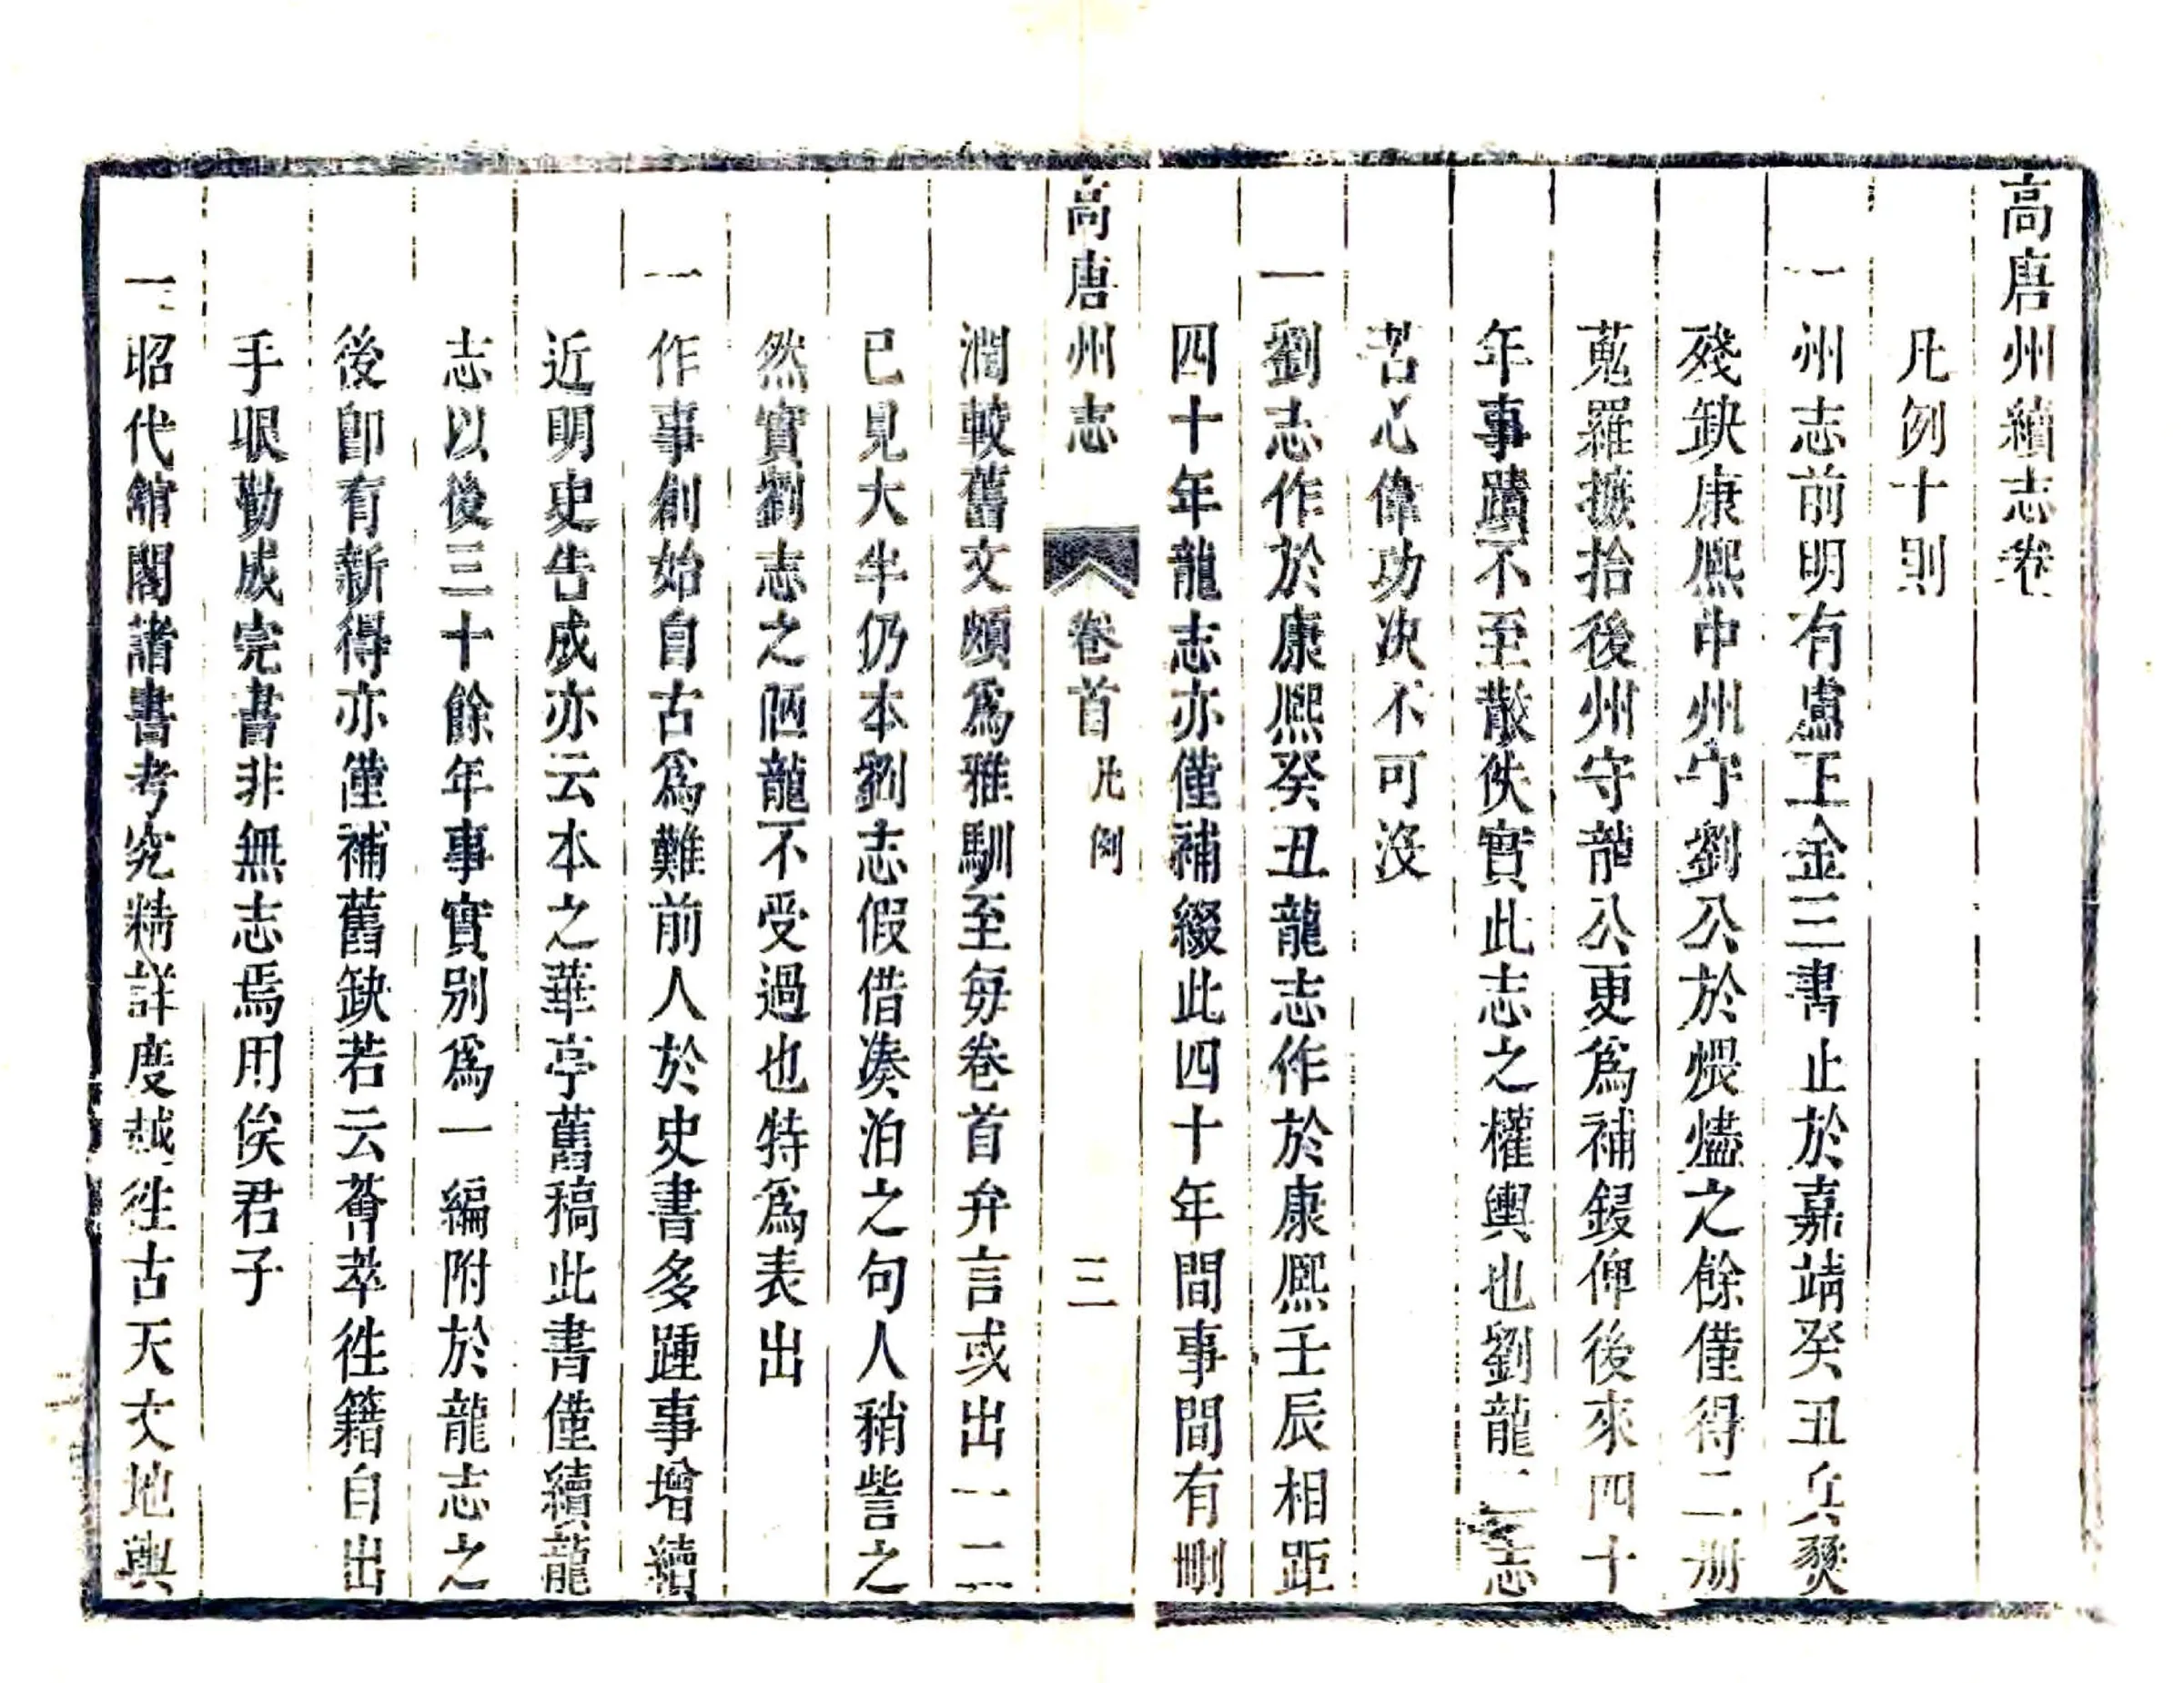 高唐州續志卷
凡例十則
一州志前明有盧王金三書止於嘉靖癸丑兵燹
殘缺康熙中州守劉公於煨燼之餘僅得二册
蒐羅摭拾後州守龍公更爲補鋟俾後來四十
年事蹟不至散佚實此志之權輿也劉龍二志
苦心偉功决不可沒
一劉志作於康熙癸丑龍志作於康熙壬辰相距
四十年龍志亦僅補綴此四十年間事間有刪
高唐州志 卷首 凡例 三
潤較舊文頗爲雅馴至每卷首弁言或出一二
已見大半仍本劉志假借凑泊之句人稍訾之
然實劉志之陋龍不受過也特爲表出
一作事創始自古爲難前人於史書多踵事增續
近明史告成亦云本之華亭舊稿此書僅續龍
志以後三十餘年事實别爲一編附於龍志之
後卽有新得亦僅補舊缺若云薈萃徃籍自出
手眼勒成完書非無志焉用俟君子
一昭代館閣諸書考究精詳度越徃古天文地輿